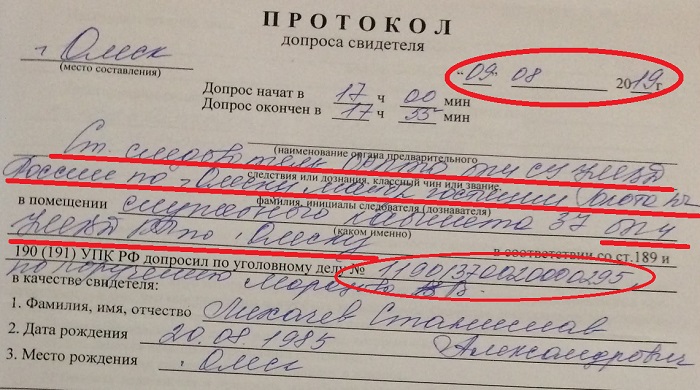 ПРОТОКОЛ
допроса свидетеля
г. Омск
(место составления)
"09" 08 2019 г
Допрос начат в 17 ч 00 мин
Допрос окончен в 17 ч 55 мин
(наименование органа предварительного
Ст. следователь ОРПТО ОП СУ УМВД
следствия или дознания, классный чин или звание,
России по г. Омску юстиции
фамилия, инициалы следователя (дознавателя)
в помещении служебного кабинета 37
(каком именно)
УМВД РФ по г. Омску в соответствии со ст.189 и
190 (191) УПК РФ допросил по уголовному делу № 11901370020000295,
по поручению
в качестве свидетеля:
1. Фамилия, имя, отчество Лихачев Станислав
Александрович
2. Дата рождения 20.08.1985
3. Место рождения г. Омск